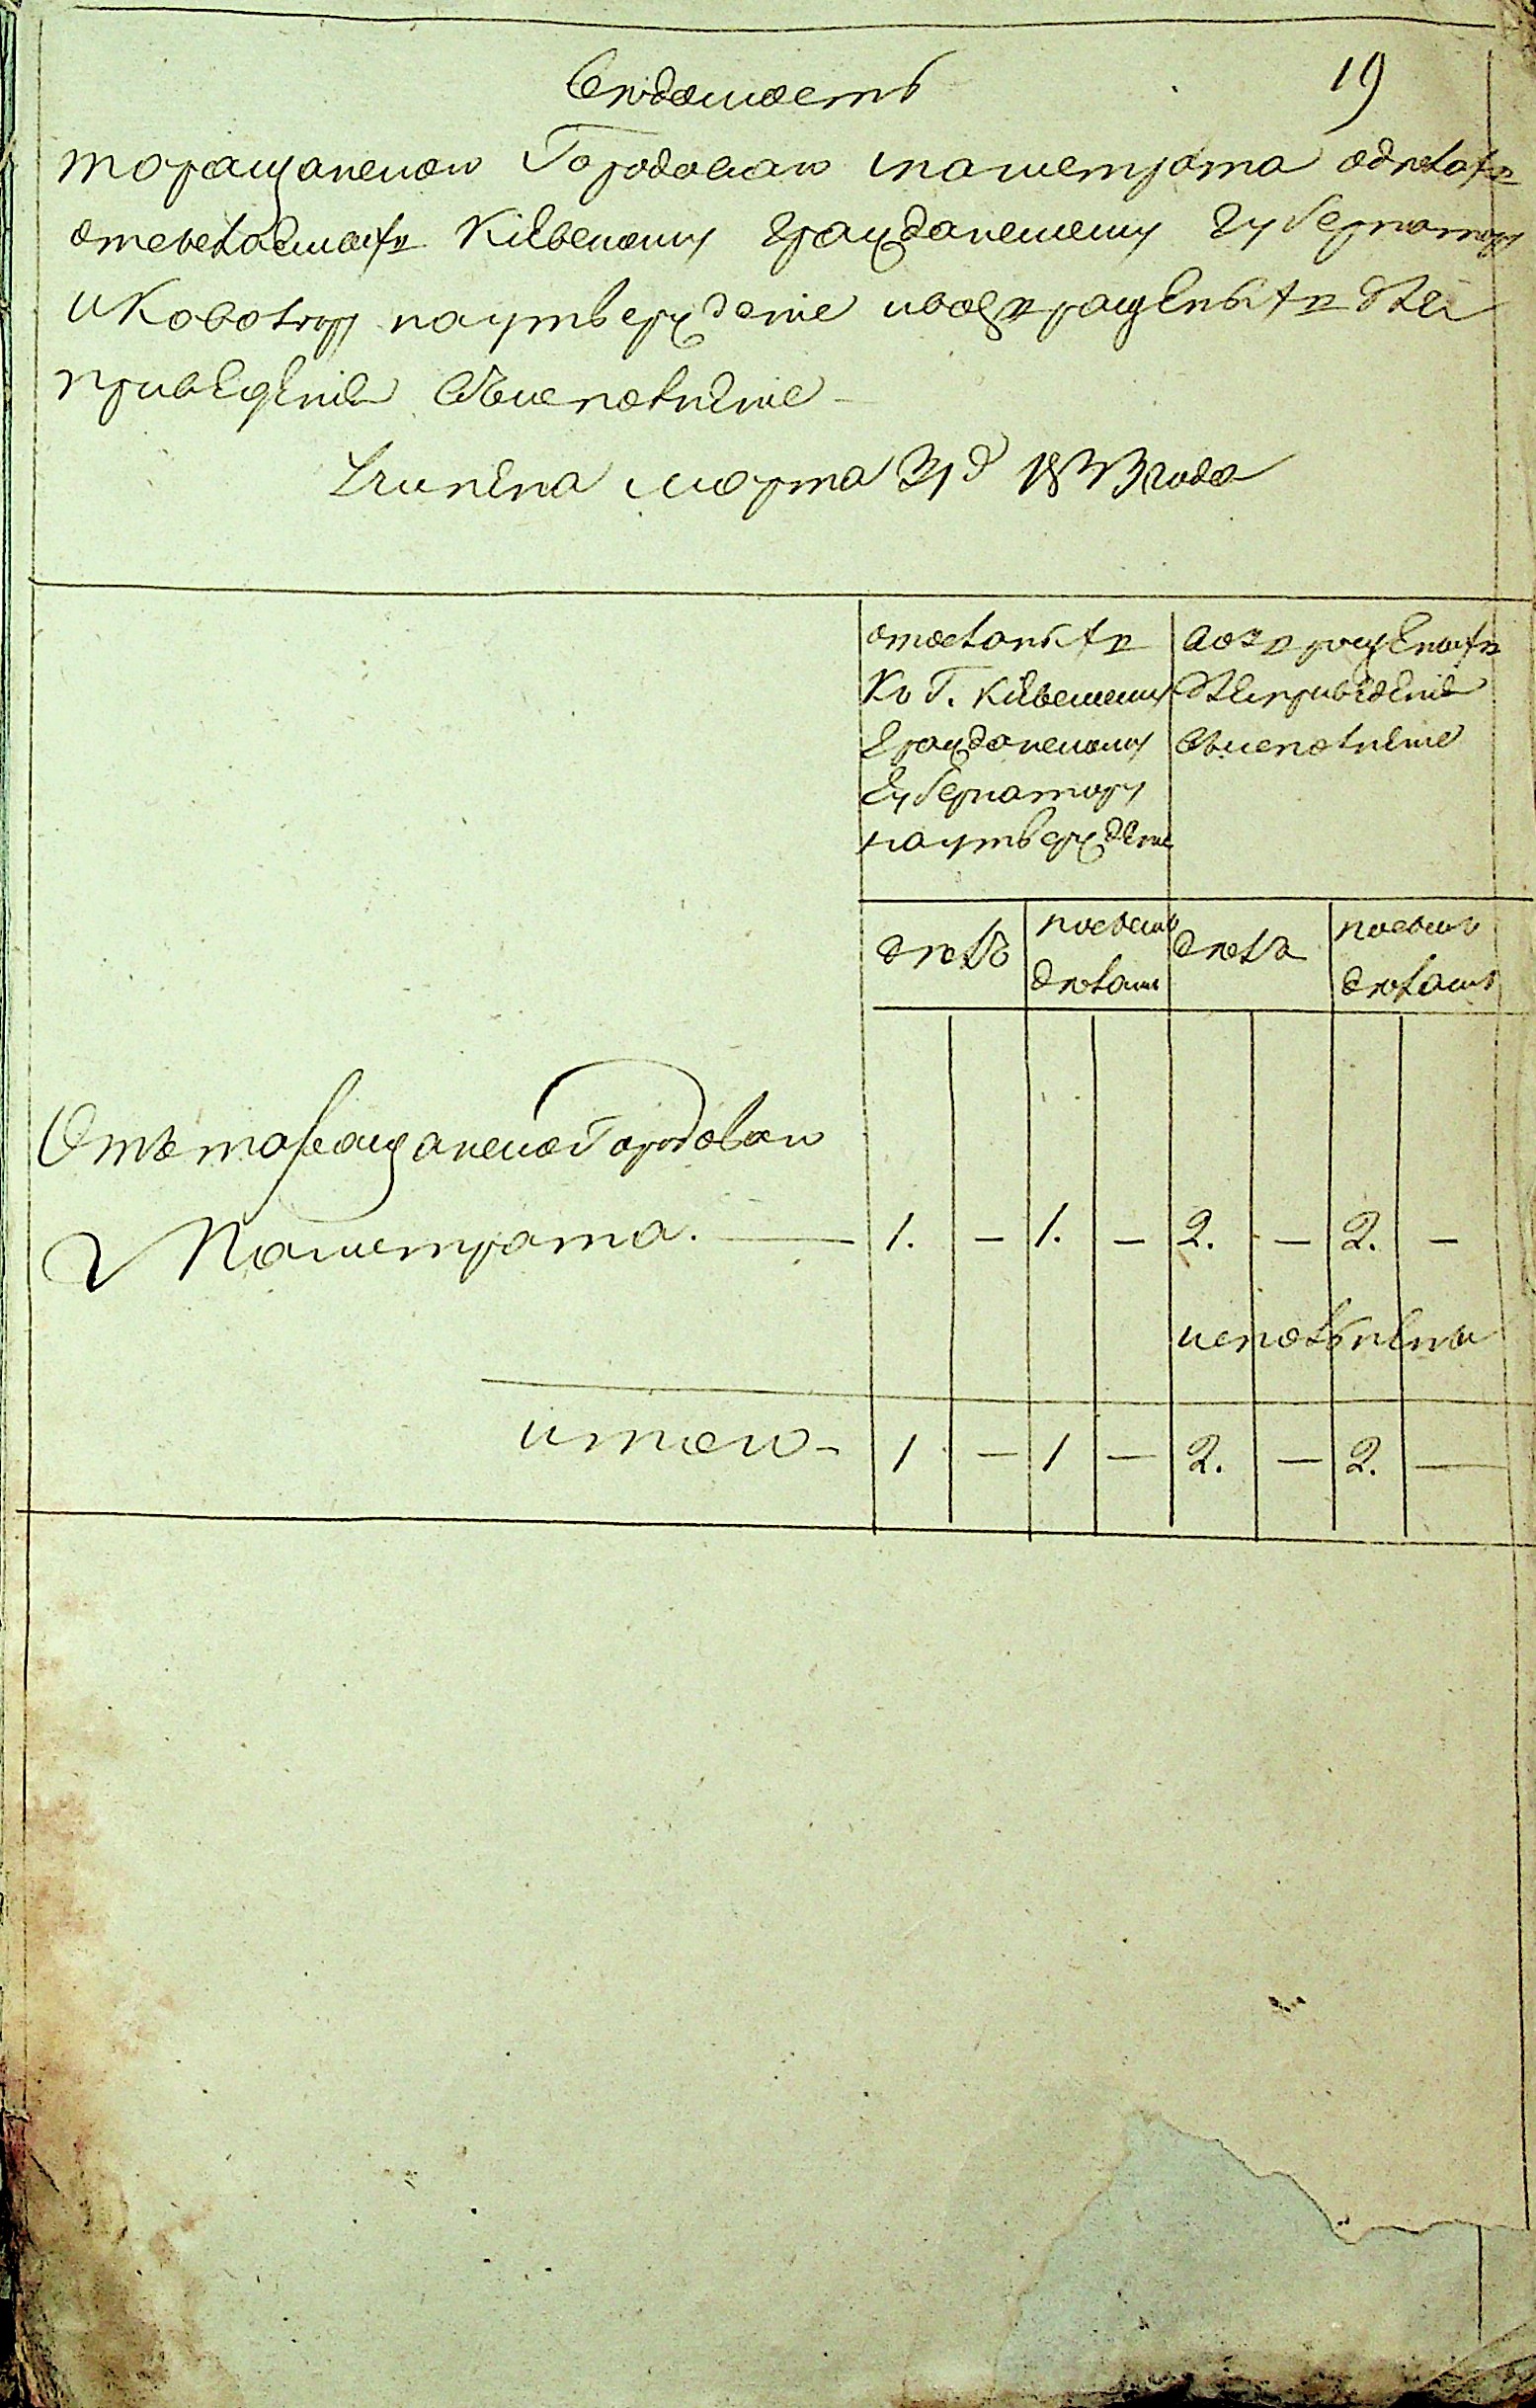 Ведомость
19
Таращанского Городоваго магистрата о делахъ
отсылаемыхъ Киевскому гражданскому Губернатору
на утверждение и возвращенныхъ для
приведения въ исполнение
марта 31 д 1833 года
отосланыхъ
Къ Г. Киевскому
гражданскому
губернатору
на утверждение
возвращеныхъ
для приведения
въ исполнение
делъ
по симъ
деламъ
делъ
по симъ
деламъ
Отъ таращанского Городоваго
Магистрата. — 1. — 1. — 2. — 2. —
исполнены
итого — 1 — 1 — 2. — 2. —